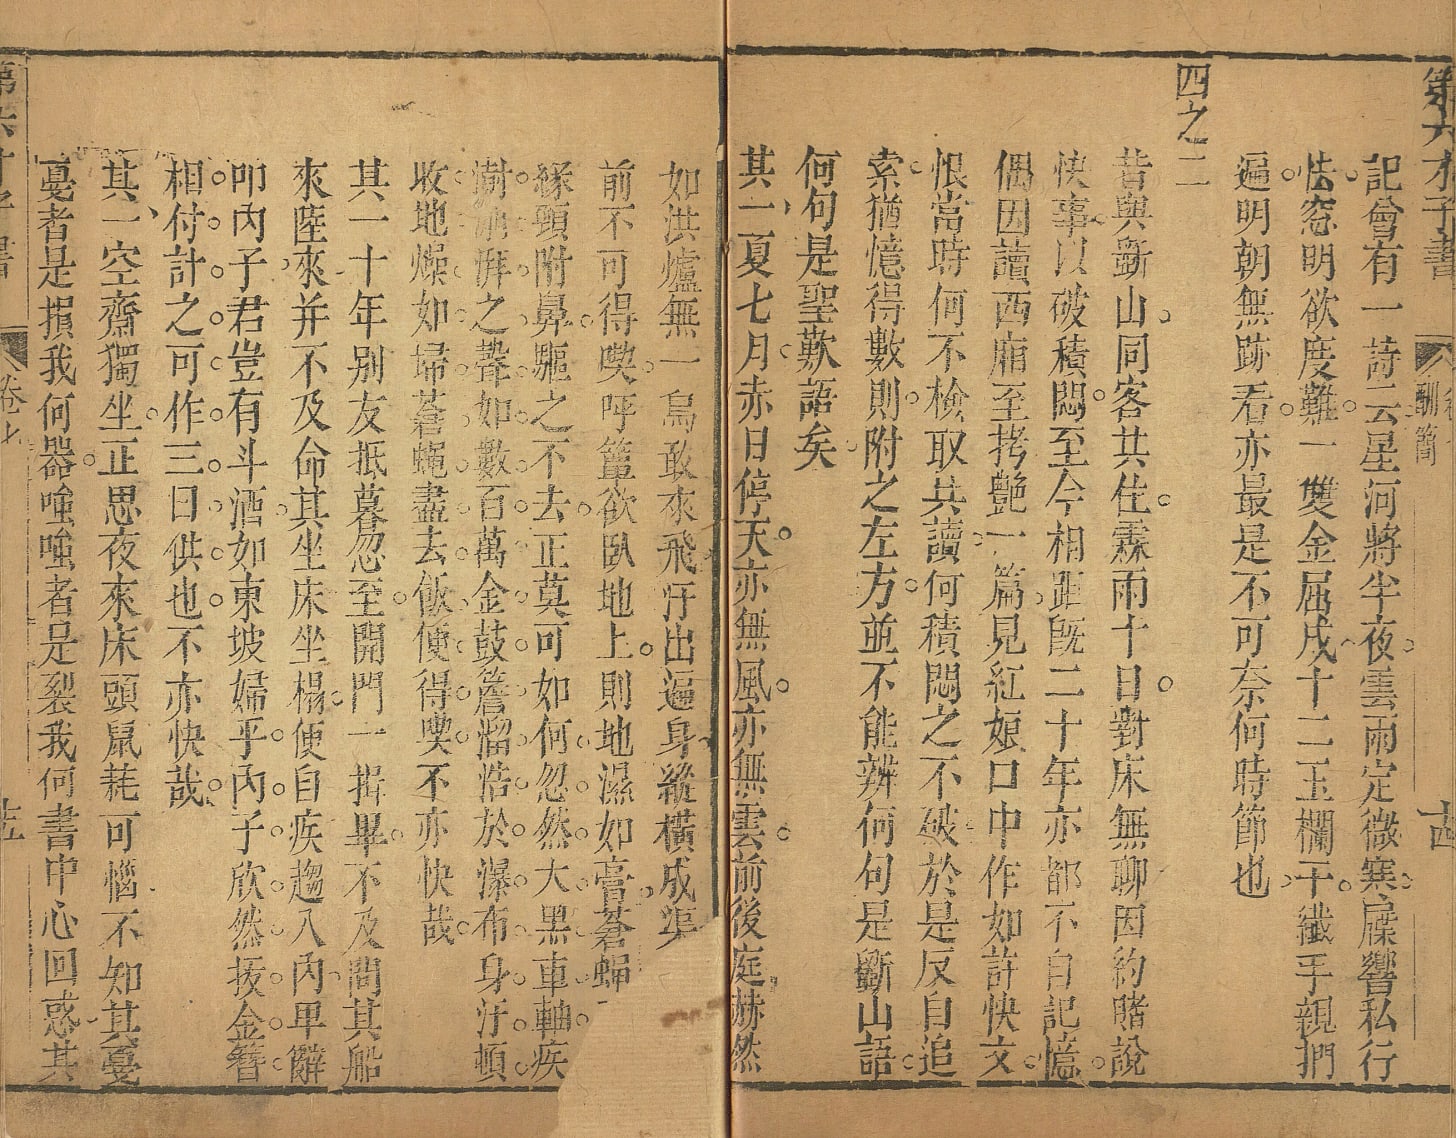 第六才子書
酬簡
十四
記曾有一詩云星河將半夜雲雨定微寒屧響私行
怯窓明欲度難一雙金屈戍十二玉欄干纖手親捫
遍明朝無跡看亦最是不可奈何時節也
四之二
昔與斵山同客共住霖雨十日對床無聊因約賭說
快事以破積悶至今相距既二十年亦都不自記憶
偶因讀西廂至拷艶一篇見紅娘口中作如許快文
恨當時何不檢取共讀何積悶之不破於是反自追
索猶憶得數則附之左方並不能辨何句是斵山語
何句是聖歎語矣
其一夏七月赤日停天亦無風亦無雲前後庭赫然
如洪爐無一鳥敢來飛汗出遍身縱橫成渠
前不可得喫呼簟欲臥地上則地濕如膏蒼蠅
緣頸附鼻驅之不去正莫可如何忽然大黑車軸疾
澍澎湃之聲如數百萬金鼓簷溜浩於瀑布身汗頓
收地燥如掃蒼蠅盡去飯便得喫不亦快哉
其一十年别友抵暮忽至開門一揖畢不及問其船
來陸來并不及命其坐床坐榻便自疾趨入內卑辭
叩內子君豈有斗酒如東坡婦乎內子欣然拔金簪
相付計之可作三日供也不亦快哉
其一空齋獨坐正思夜來床頭鼠耗可惱不知其戞
戞者是損我何器嗤嗤者是裂我何書中心回惑其
第六才子書
卷七
十五